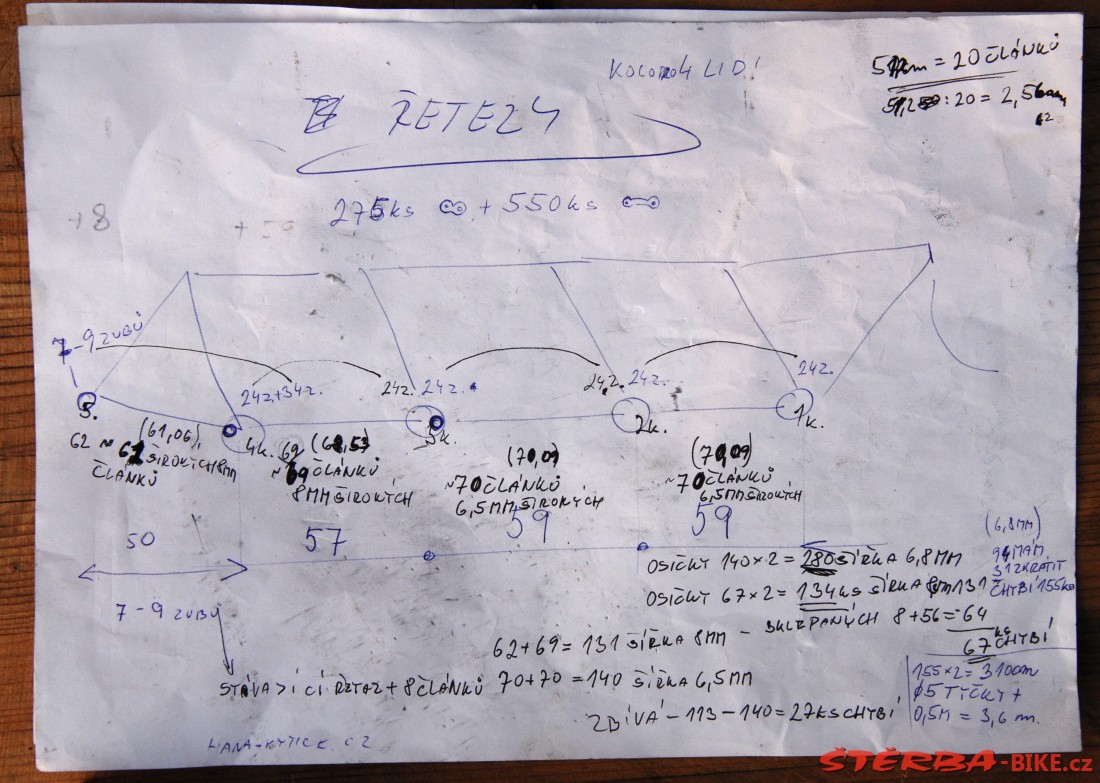 KOLO 4 LIDÍ
51cm = 20 ČLÁNKŮ
: 20 = 2,56
ŘETEZY
275ks + 550ks
+8
+ 59
7-9 ZUBŮ
24z.+34z.
24z.
24z.
24z.
24z.
24z.
5.
4k.
3k.
2k.
1k.
(61,06)
62 ~ 61 ŠIROKÝCH 8MM
ČLÁNKŮ
69
ČLÁNKŮ
8MM ŠIROKÝCH
(70,09)
~70 ČLÁNKŮ
6,5MM ŠIROKÝCH
(70,09)
~70 ČLÁNKŮ
6,5MM ŠIROKÝCH
50
57
59
59
7-9 ZUBŮ
STÁVAJÍCÍ ŘETAZ + 8 ČLÁNKŮ
OSIČKY 140×2 = 280 ŠÍŘKA 6,8MM
OSIČKY 67×2 = 134ks ŠÍŘKA 8mm 131
62+69 = 131 ŠÍŘKA 8MM - SKLEPANÝCH 8+56=-64
67 ks CHYBÍ
70+70 = 140 ŠÍŘKA 6,5MM
ZBÍVÁ - 113 - 140 = 27KS CHYBÍ
(6,8MM)
94 MÁM
31 ZKRÁTIT
CHYBÍ 155ks
155×2 = 310cm
Ø5 TYČKY +
0,5M = 3,6 m.
HANA-KYTICE.CZ
ŠTĚRBA-BIKE.cz